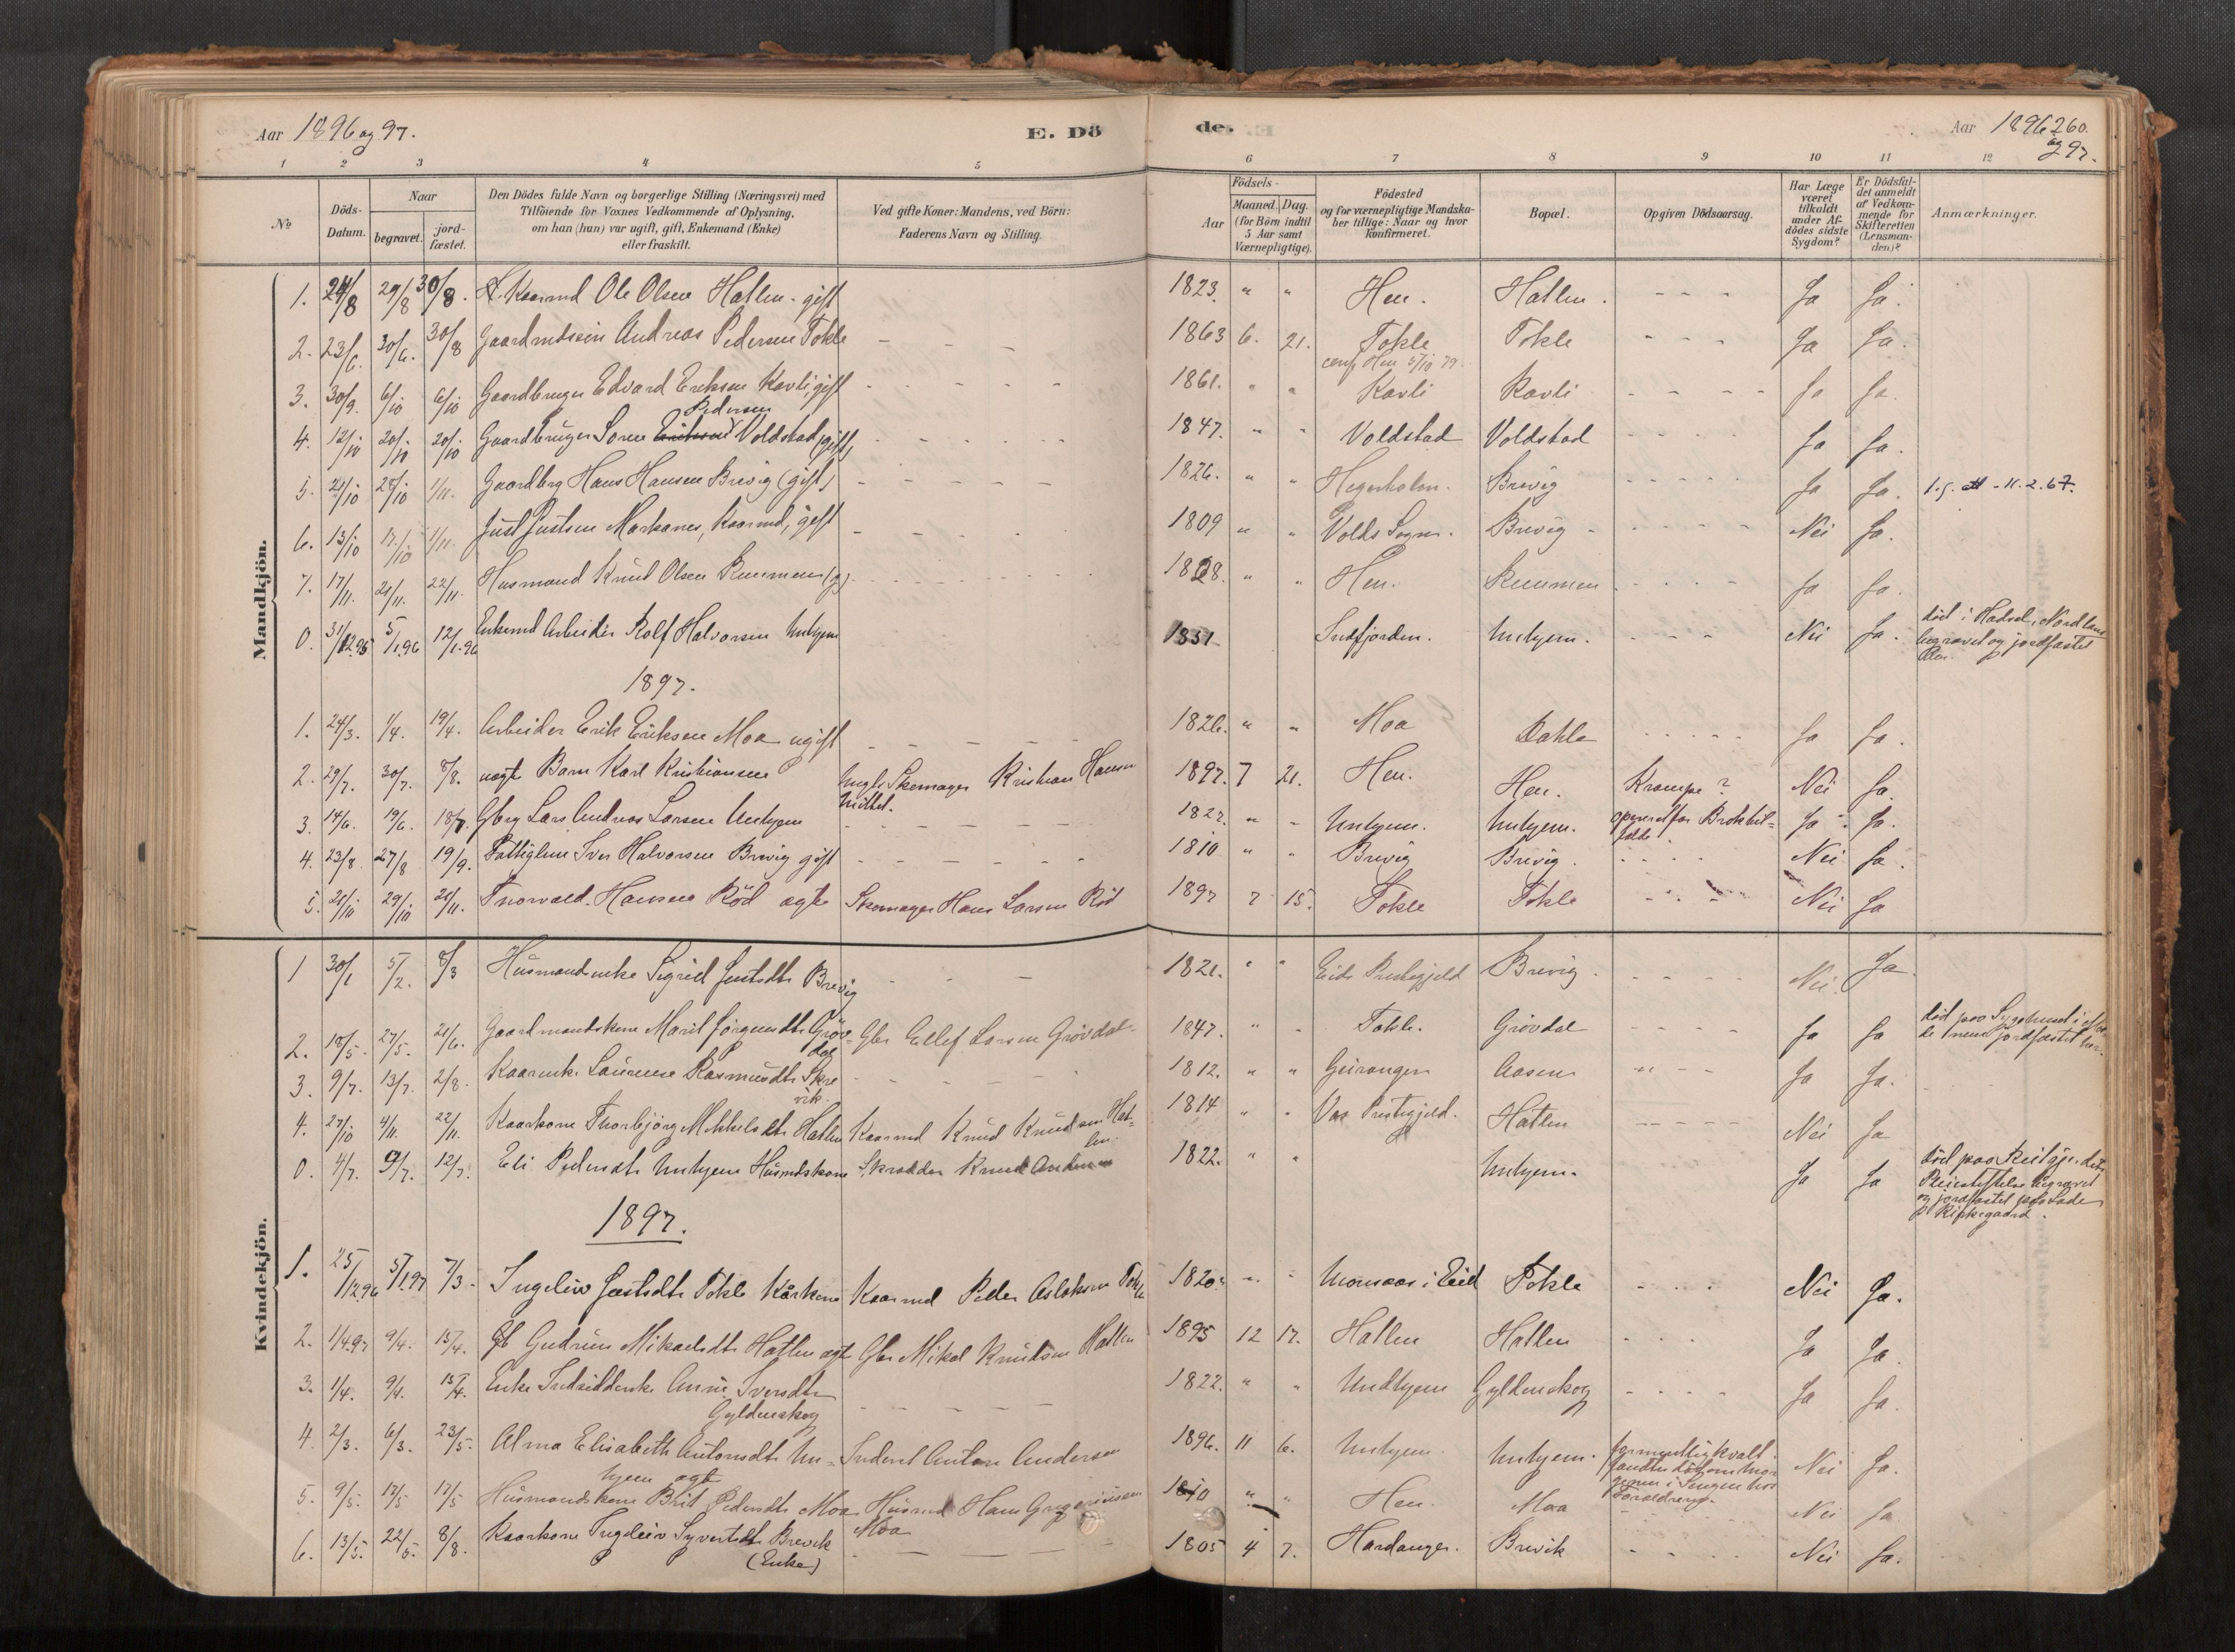 Aar 1896 og 97.
E. Dö
de.
Aar 1896 260.
og 97.
1 2 3 4 5 6 7 8 9 10 11 12
No
Döds-Datum.
Naar
begravet.
jord-fæstet.
Den Dödes fulde Navn og borgerlige Stilling (Næringsvei) med
Tilföiende for Voxnes Vedkommende af Oplysning,
om han (hun) var ugift, gift, Enkemand (Enke)
eller fraskilt.
Ved gifte Koner: Mandens, ved Börn:
Faderens Navn og Stilling.
Födsels-
Aar
Maaned. Dag.
(for Börn indtil
5 Aar samt
Værnepligtige).
Födested
og for værnepligtige Mandska-
ber tillige: Naar og hvor
konfirmeret.
Bopæl.
Opgiven Dödsaarsag.
Har Læge
været
tilkaldt
under Af-
dödes sidste
Sygdom?
Er Dödsfal-
det anmeldt
af Vedkom-
mende for
Skifteretten
(Lensman-
den)?
Anmærkninger.
Mandkjön.
1. 24/8 29/8 30/8. Kaarmd Ole Olsen Hatlen. gift 1823. " " Hen. Hatlen. - - - Ja Ja.
2. 23/6. 30/6. 30/8 Gaardmdssøn Andreas Pedersen Tokle - - - 1863 6. 21. Tokle Tokle - - - Ja Ja.
conf Hen 5/10 79.
3. 30/9. 6/10 6/10 Gaardbruger Edvard Eriksen Kavli, gift - - - 1861. " " Kavli Kavli - - - - Ja Ja.
Pedersen
4. 12/10 20/10 20/10 Gaardbruger Søren Eriksen Voldstad (gift) - - - 1847. " " Voldstad Voldstad - - - Ja Ja.
5. 21/10 28/10 1/11. Gaardbrg Hans Hansen Brevig (gift) - - - 1826. " " Hegerholm. Brevig - - - Ja Ja. - 11.2.67.
6. 13/10 17/10 1/11. Just Justsen Markanes, Kaarmd, gift - - - 1809 " " Volds Sogn. Brevig - - - Nei Ja.
7. 17/11. 21/11. 22/11. Husmand Knud Olsen (g). - - - 1828. " " Hen. - - - Ja Ja.
0. 31/12.95 5/1.96 12/1.96 Enkemd Arbeider Rolf Halvorsen Unhjem 1831 Indfjorden. Unhjem. - - - Nei Ja. død i Hadsel, Nordland
begravet og jordfæstet
1897.
1. 24/3. 1/4. 19/4. Arbeider Erik Eriksen Moa ugift - - - 1826. " " Moa Dahle - - - Ja Ja.
2. 29/7. 30/7. 8/8. uægte Barn Karl Kristiansen Ungk. Skomager Kristian Hansen 1897. 7 21. Hen. Hen. Krampe? Nei Ja.
3. 14/6. 19/6. 18/7. Gbrg Lars Andreas Larsen Unhjem - - - 1827. " " Unhjem. Unhjem. opereret for Brokbet= Ja Ja.
4. 23/8. 27/8 19/9. Fattiglem Iver Halvorsen Brevig gift - - - 1810 " " Brevig Brevig. - - - Nei Ja.
5. 21/10 29/10 21/11. Thorvald Hansen Rød ægte Skomager Hans Larsen Rød 1897 7 15. Tokle Tokle - - - Nei Ja
Kvindekjön.
1 30/1 5/2. 8/3 Husmandsenke Sigrid Justsdtr Brevig - - - 1821. " " Eids Prestegjeld Brevig. - - - Nei. Ja.
2. 18/5. 27/5. 21/6. Gaardmandskone Marit Jørgensdtr Grøv= Gbr Ellef Larsen Grøvdal. 1847. " " Tokle. Grøvdal - - - Ja Ja død paa Sygehuset i Mol=
dal de men jordfæstet her.
3. 9/7. 13/7. 2/8. Kaarenke Laurense Rasmusdtr Skre - - - 1812. " " Geiranger Aasen " - - Ja Ja.
vik.
4. 27/10 4/11. 22/11. Kaarkone Thorbjørg Mikkelsdtr Hatlen Kaarmd Knud Knudsen Hat= 1814 " " Vos Prestegjeld. Hatlen - - - Nei Ja
len.
0. 4/7. 9/7. 12/7. Eli Pedersdtr Unhjem Husmdskone Skrædder Knud Andersen 1822. " " Unhjem. Ja Ja død paa Reitgjerdets
Pleiestiftelse begravet
og jordfæstet paa Lade
Kirkegaard.
1897.
1. 25/12.96 5/1.97 7/3. Ingeliv Justsdtr Tokle Kårkone Kaarmd Peder Aslaksen Tokle 1820. " " i Eid Tokle - - - Nei Ja.
2. 1/4.97 9/4. 15/4. Gudrun Mikaelsdtr Hatlen ægte Gbr Mikal Knudsen Hatlen 1895 12 17. Hatlen Hatlen - - - Ja Ja.
3. 1/4. 9/4. 15/4. Enke Inderstenke Anne Iversdtr - - - 1822. " " Undhjem Gyldenskog - - - Ja Ja.
Gyldenskog
4. 2/3. 6/3. 23/5. Alma Elisabeth Antonsdtr Un= Inderst Anton Andersen 1896. 11 6. Unhjem. Unhjem. formentlig kvalt. Nei Ja.
hjem ægte fandtes død om Mor
genen i Sengen hos
Forældrene.
5. 9/5. 17/5 17/5 Husmandskone Brit Pedersdtr Moa Husmd Hans Gregoriussen 1810 " " Hen. Moa Nei Ja
Moa
6. 13/5. 22/5. 8/8. Kaarkone Ingeleiv Syvertsdtr Brevik - - - 1805 4 7. Hardanger. Brevik - - - Nei Ja.
(Enke)